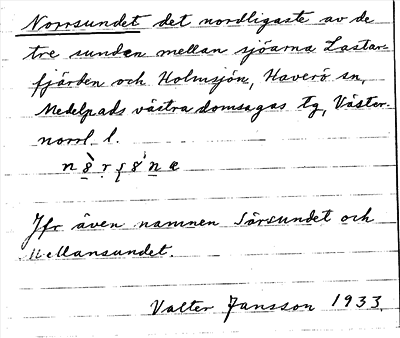 Norrsundet det nordligaste av de
tre sunden mellan sjöarna Lastar-
fjärden och Holmsjön, Haverö sn,
Medelpads västra domsagas tg, Väster-
norrl. l.
Jfr även namnen Sörsundet och
Mellansundet.
Valter Jansson 1933.